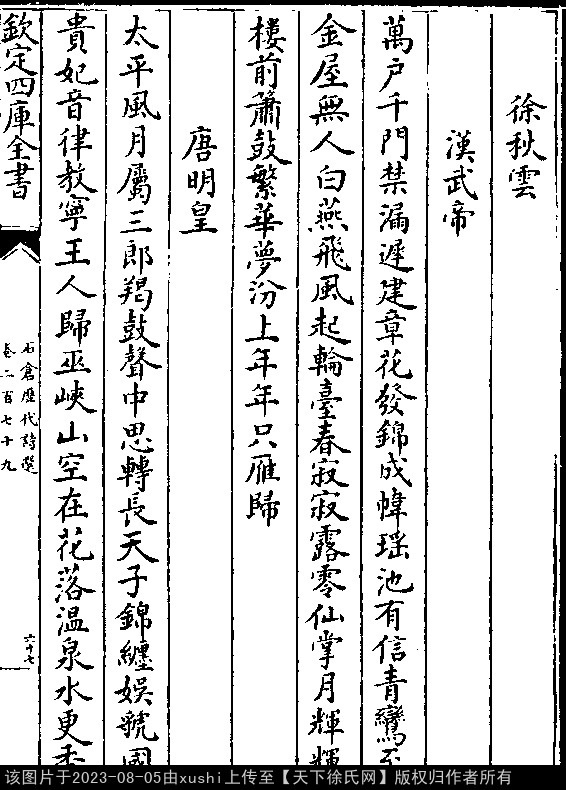 徐秋雲
漢武帝
萬户千門禁漏遲建章花發錦成幃瑶池有信青鸞至
金屋無人白燕飛風起輪臺春寂寂露零仙掌月輝輝
樓前蕭鼓繁華夢汾上年年只雁歸
唐明皇
太平風月屬三郎羯鼓聲中思轉長天子錦纏娱虢國
貴妃音律教寧王人歸巫峽山空在花落温泉水更香
欽定四庫全書
石倉歷代詩選
卷二百七十九
六十七
该图片于2023-08-05由xushi上传至【天下徐氏网】版权归作者所有